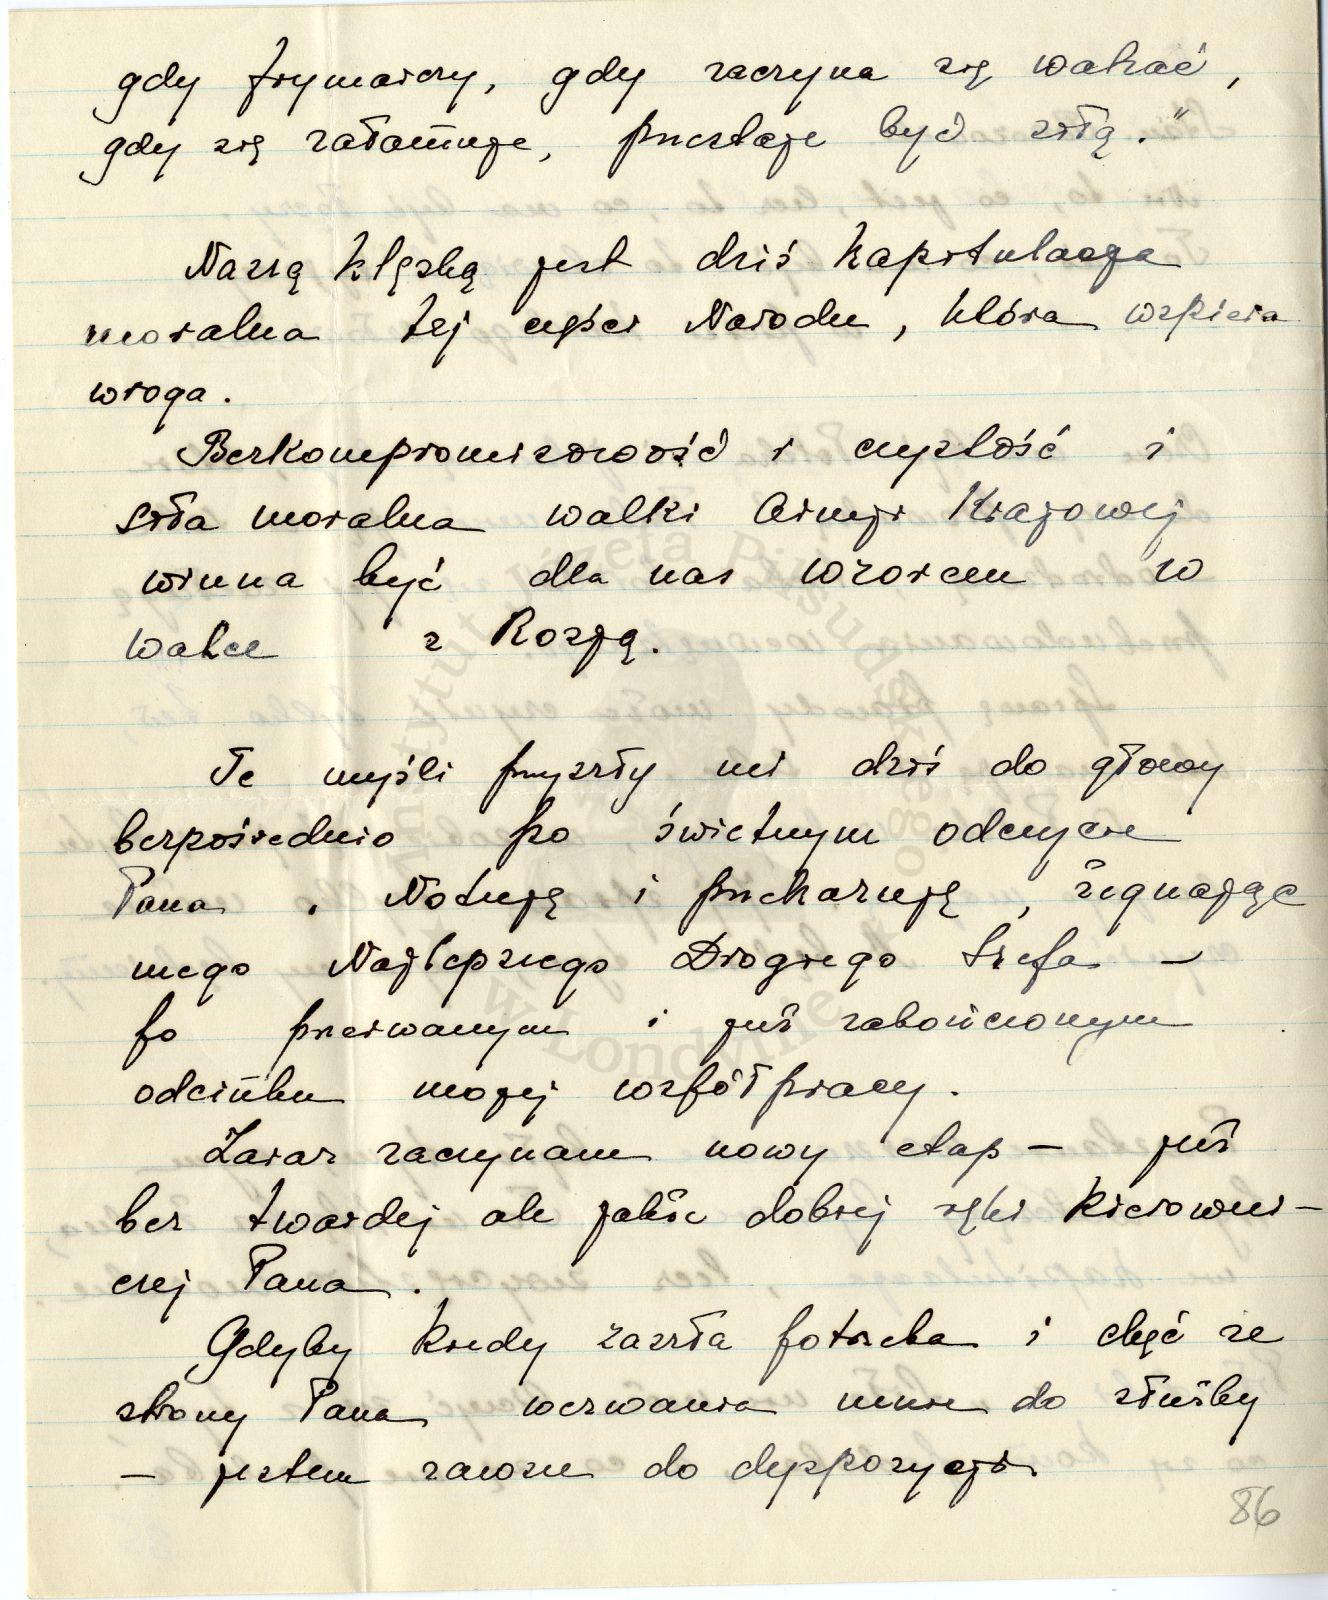 gdy frymarczy, gdy zaczyna się wahać,
gdy się załamuje, przestaje być siłą."
Naszą klęską jest dziś kapitulacja
moralna tej części Narodu, która wspiera
wroga.
Bezkompromisowość i czystość i
siła moralna walki Armji Krajowej
winna być dla nas wzorcem w
walce z Rosją.
Te myśli przyszły mi dziś do głowy
bezpośrednio po świetnym odczycie
Pana. Notuję i przekazuję, żegnając
mego Najlepszego Drogiego Szefa –
po przerwanym i już zakończonym
odcinku mojej współpracy.
Zaraz zaczynam nowy etap – już
bez twardej ale jakże dobrej ręki kierowni–
czej Pana.
Gdyby kiedy zaszła potrzeba i chęć ze
strony Pana wezwania mnie do służby
– jestem zawsze do dyspozycji.
86
Instytut Józefa Piłsudskiego
w Londynie